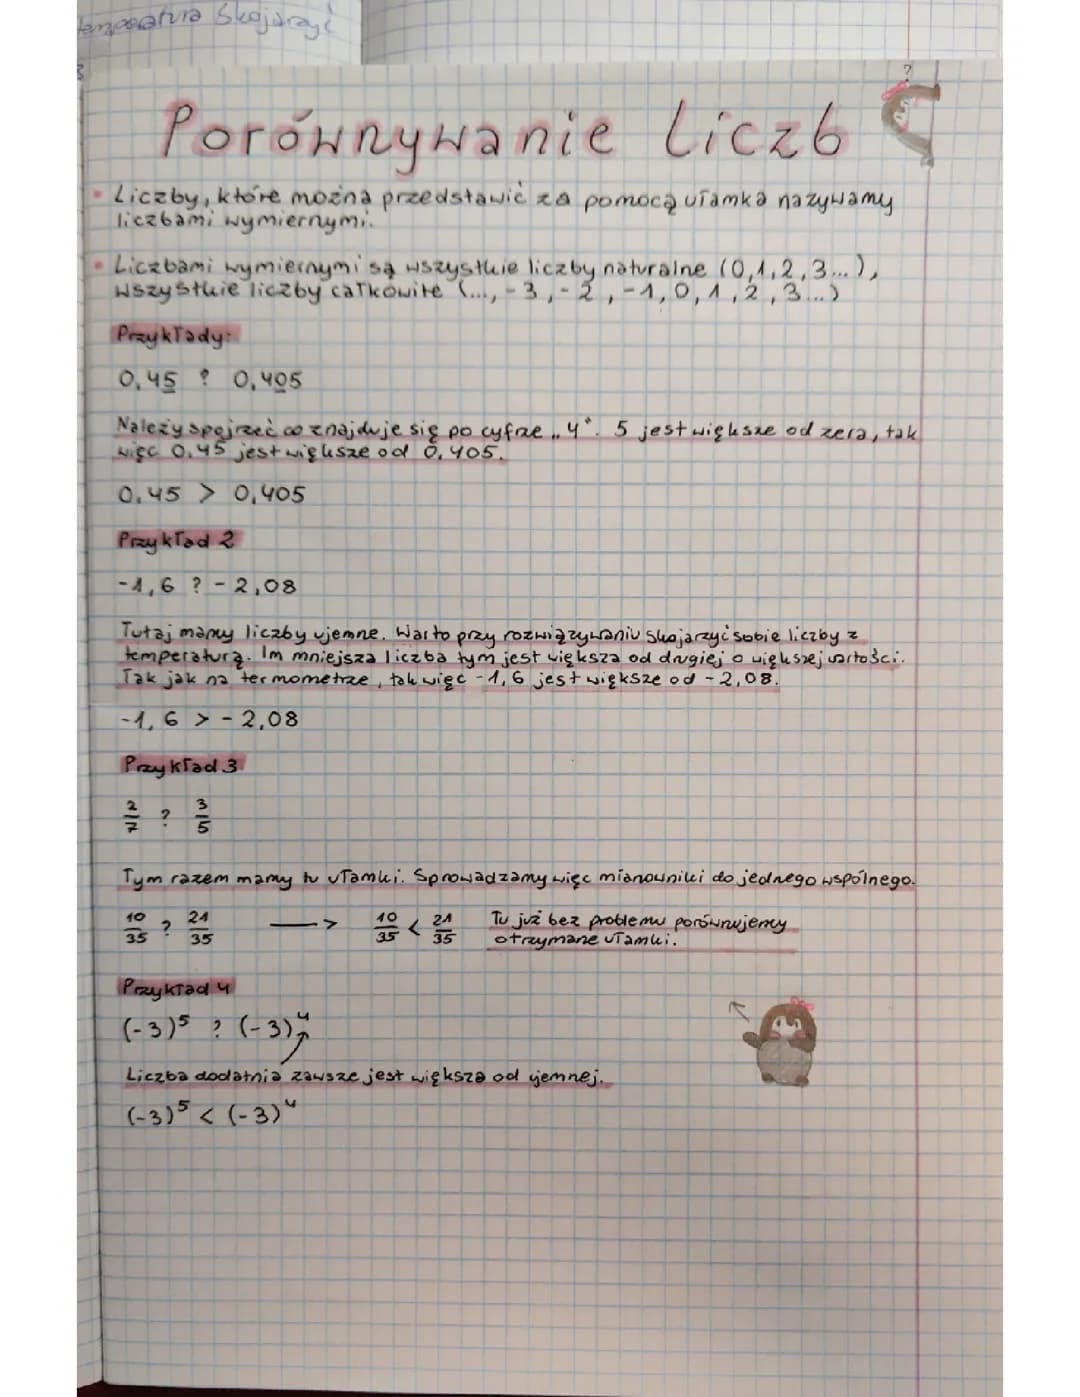 temperatura Skojarzyć
?
Porównywanie liczb
• Liczby, które można przedstawić za pomocą ułamka nazywamy
liczbami wymiernymi.
• Liczbami wymiernymi są wszystkie liczby naturalne (0,1,2,3...),
wszystkie liczby całkowite (..., -3, -2, -1, 0, 1, 2, 3...)
Przykłady:
0,45 ? 0,405
Należy spojrzeć co znajduje się po cyfrze „4". 5 jest większe od zera, tak
więc 0,45 jest większe od 0,405.
0,45 > 0,405
Przykład 2
-1,6 ? -2,08
Tutaj mamy liczby ujemne. Warto przy rozwiązywaniu skojarzyć sobie liczby z
temperaturą. Im mniejsza liczba tym jest większa od drugiej o większej wartości.
Tak jak na termometrze, tak więc -1,6 jest większe od -2,08.
-1,6 > -2,08
Przykład 3
2/7 ? 3/5
Tym razem mamy tu ułamki. Sprowadzamy więc mianowniki do jednego wspólnego.
10/35 ? 21/35 → 10/35 < 21/35 Tu już bez problemu porównujemy
otrzymane ułamki.
Przykład 4
(-3)⁵ ? (-3)⁴
Liczba dodatnia zawsze jest większa od ujemnej.
(-3)⁵ < (-3)⁴